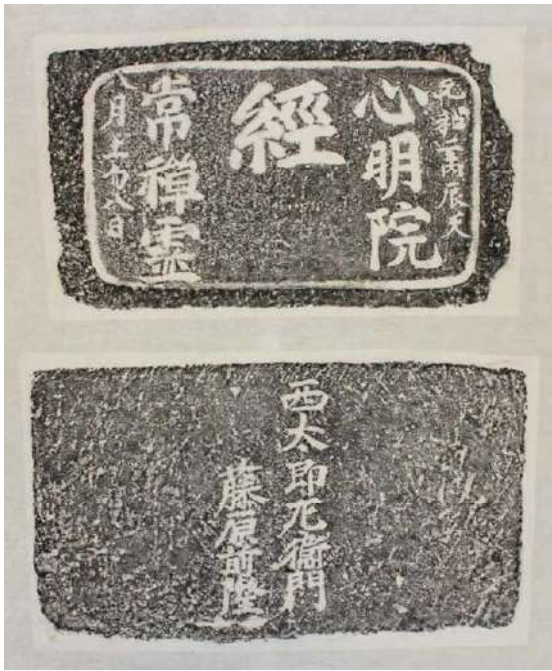 元和二丙辰天
心明院
經
常禅霊
八月 八日
西太郎左衛門
藤原前